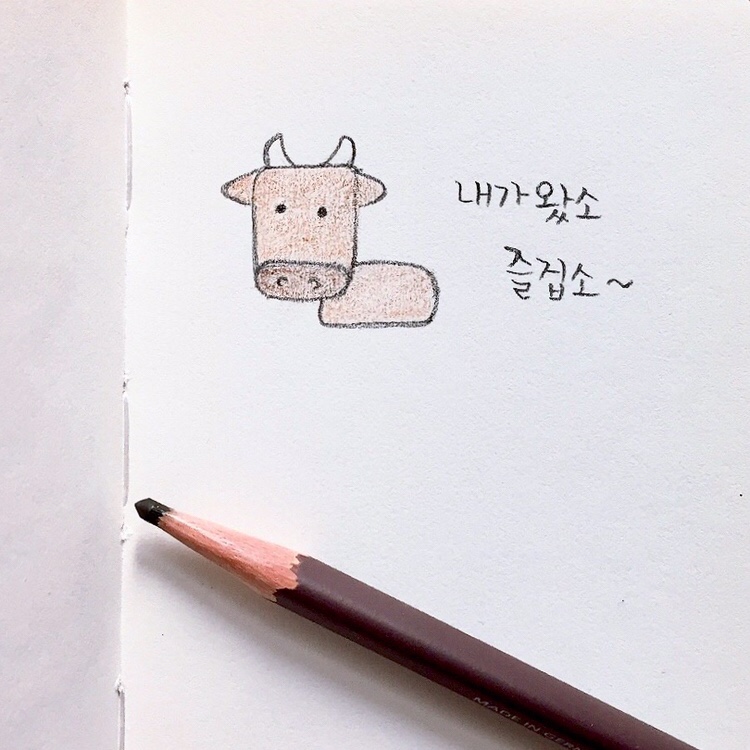 내가 왔소
즐깁소~
MADE IN GER